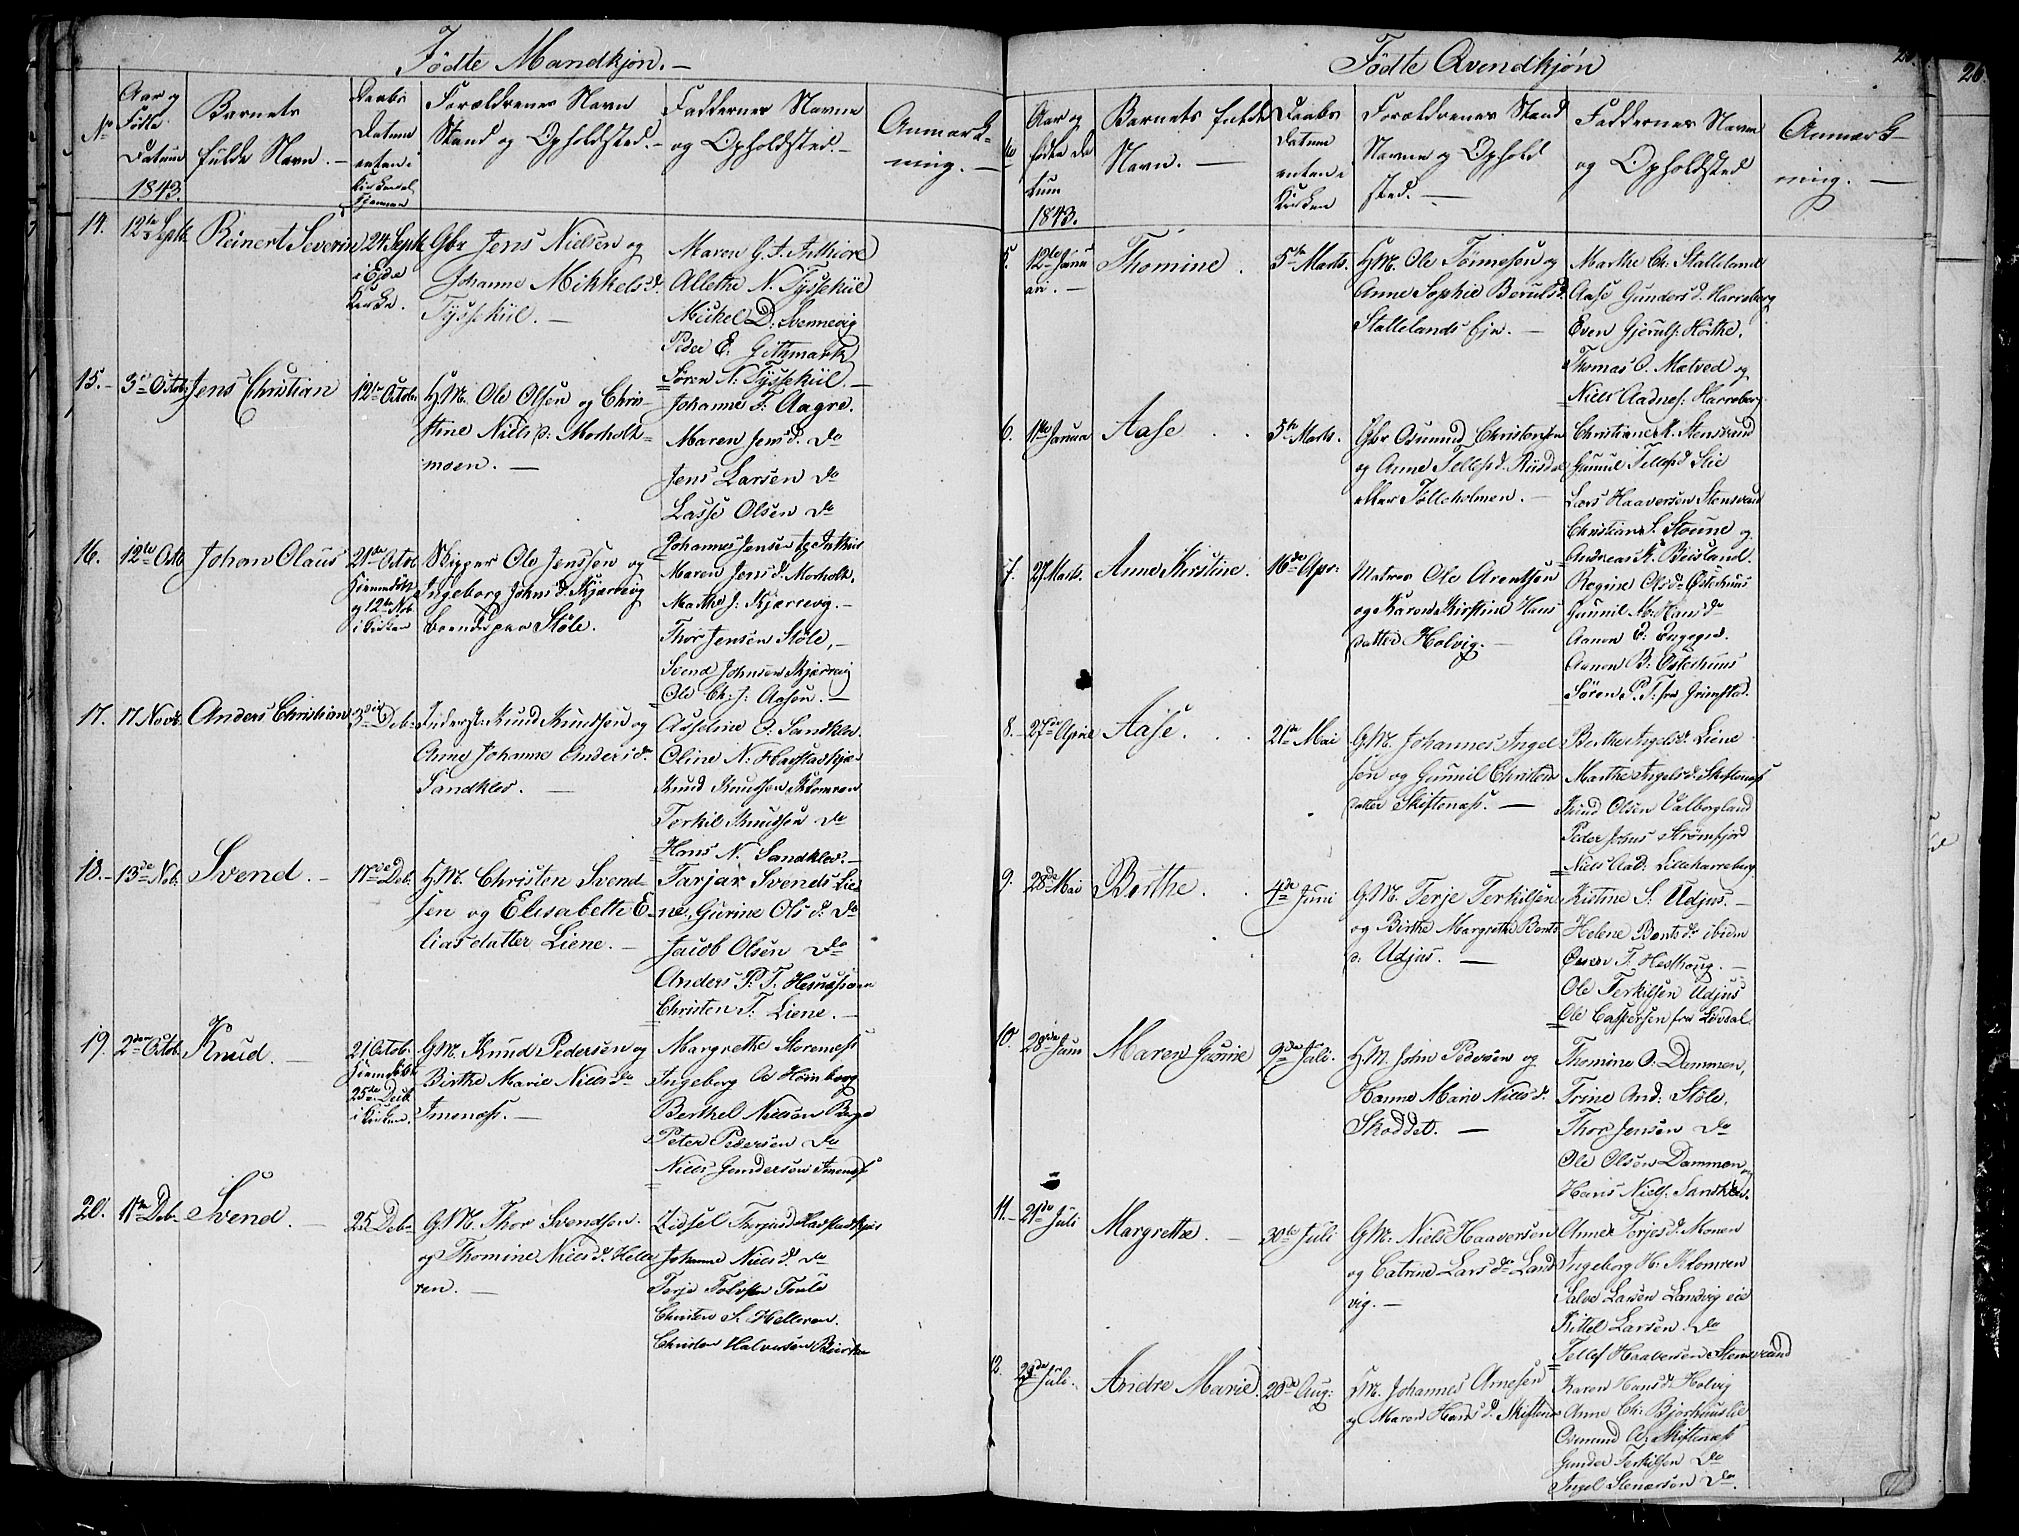 Fødte Mandkjøn. —
No
Aar og
Fødte
Datum
1843.
Barnets
fulde Navn. —
Daabs
Datum
enten i
Kirken el.
Hjemme
Forældrenes Navn
Stand og Opholdsted. —
Faddernes Navne
og Opholdsted. —
Anmærk-
ning. —
14. 12te Septb. Reinert Severin 24 Septb.
i Eide
Kirke.
Gbr Jens Nielsen og
Johanne Mikkelsd.
Tyssekiil. —
Maren G. Inthiore
Allethe N. Tyssekiil
Mickel D. Svennevig
Peder E. Githmark
Søren N. Tyssekiil. —
15. 3die Octob. Jens Christian 12te Octob.
HM. Ole Olsen og Chri-
stine Nielsd. Morholt-
moen. —
Johanne T. Aagre.
Maren Jensd. Do
Jens Larsen Do
Lasse Olsen Do
Johannes Jensen
16. 12te Octb Johan Olaus 21de Octob
Hjemmedøbt
og 12te Nob
i Kirken
Skipper Ole Jenssen og
Ingeborg Johnsd. Kjærrevig
boende paa Støle.
Maren Jensd. Morholt.
Marthe J. Kjærrevig. —
Thor Jensen Støle, —
Svend Johnsen Kjærrevig
Ole Ch. J. Aasen. —
17. 17 Novb. Anders Christian 3die Deb.
Knud Knudsen og
Anne Johanne Andersd.
Sandklev. —
Asseline O. Sandklev.
Oline N. Harstadkjær
Knud Knudsen Klomren
Terkil Knudsen Do
Hans N. Sandklev. —
18. 13de Nob. Svend. — 17de Deb.
HM. Christen Svend-
sen og Elisabethe E-
liasdatter Liene. —
Tarjar Svends. Lie-
ne, Gurine Ols d. Do
Jacob Olsen Do
Anders P. T.
Christen T. Liene. —
19. 2den Octob. Knud. — 21 Octob.
Hjemdøbt
25de Decb.
i Kirken.
GM. Knud Pedersen og
Birthe Marie Nielsd.
Imenæs. —
Margrethe Steenæss
Ingeborg A Homborg
Berthel Nielsen Berge
Peter Pedersen Do
Niels Gundersen Imenæs
20. 17de Deb. Svend. — 25 Deb.
GM. Thor Svendsen
og Thomine Nielsd. Helle
ren. —
Zidsel Terjesd. Harstadkjær
Johanne Niels d. Do
Terje Tolvsen
Christen S. Helleren.
Christen Halvorsen
Fødte Qvendkjøn
26
Aar og
fødte Da
tum
1843.
Barnets fulde
Navn. —
Daabs
Datum
enten i
Kirken
Forældrenes Stand
Navne og Ophold
sted. —
Faddernes Navn
og Opholdsted
Anmærk-
ning. —
5. 12te Janu
ari. —
Thomine. 5te Marts.
HM. Ole Tønnesen og
Anne Sophie Berulsd.
Stallelands Eje. —
Marthe Ch. Stalleland
Aase Gundersd. Harreberg
Even Gjeruls. Horthe.
Thomas O. Mætved og
Niels Aadnes. Harreberg
6. Janua Aase 5te Marts.
Gbr Osmund Christensen
og Anne Tellefsd. Riisdal
eller Tolleholmen. —
Christiane K. Stensvand
Gunuld Tellefsd. Slie
Lars Haaversen Stensvand
Christian S. Stoune og
Andreas K. Beisland.
7. 27 Marts. Anne Kirstine. 16de Apr.
Matros Ole Arentsen
og Karen Kirstine Hans
datter Holvig. —
Regine Olsd. Østerhuus
Gunnil M. Hansd.
Aanon E. Engegrd.
Aanon B. Østerhuus
Søren P. T. fra Grimstad.
8. 27de April Aase. 21de Mai
GM. Johannes Ingel
sen og Gunnil Christen
datter Skiftenæs. —
Berthe Ingelsd. Liene
Marthe Ingelsd. Skiftenæss
Knud Olsen Valborgland
Peder Johns Strømfjord
Niels Aad. Lilleharreberg
9. 28de Mai Berthe. 4de Juni
GM. Terje Terkilsen
og Birthe Margrethe Bents
d. Udjus. —
Kistine S. Udjus. —
Helene Bents d. ibidem
T. Hesthaug. —
Ole Terkilsen Udjus
Ole Caspersen fra Løvdal.
10. 28de Juni Maren Gurine 9de Juli.
HM. John Pedersen og
Hanne Marie Nielsd.
Skoddet. —
Thomine O. Dammen,
Trine And. Støle.
Thor Jensen Do
Ole Olsen Dammen og
Hans Niels. Sandklev.
11. 21de Juli Margrethe. — 30te Juli
GM. Niels Haaversen
og Catrine Lars d. Land
vig. —
Anne Terjes d. Monen
Ingeborg H. Klomren
Salve Larsen Landvig eie
Kittel Larsen. Do
Tellef Haaversen Stensvand
12. 23de Juli. Andre Marie. 20de Aug.
HM. Johannes Arnesen
og Maren Hansd. Skiftenæs
Karen Hansd. Holvig
Anne Ch. Bjorhuuslie
Osmund A. Skiftenæss
Gunder Terkilsen Do
Ingel Stenersen Do.